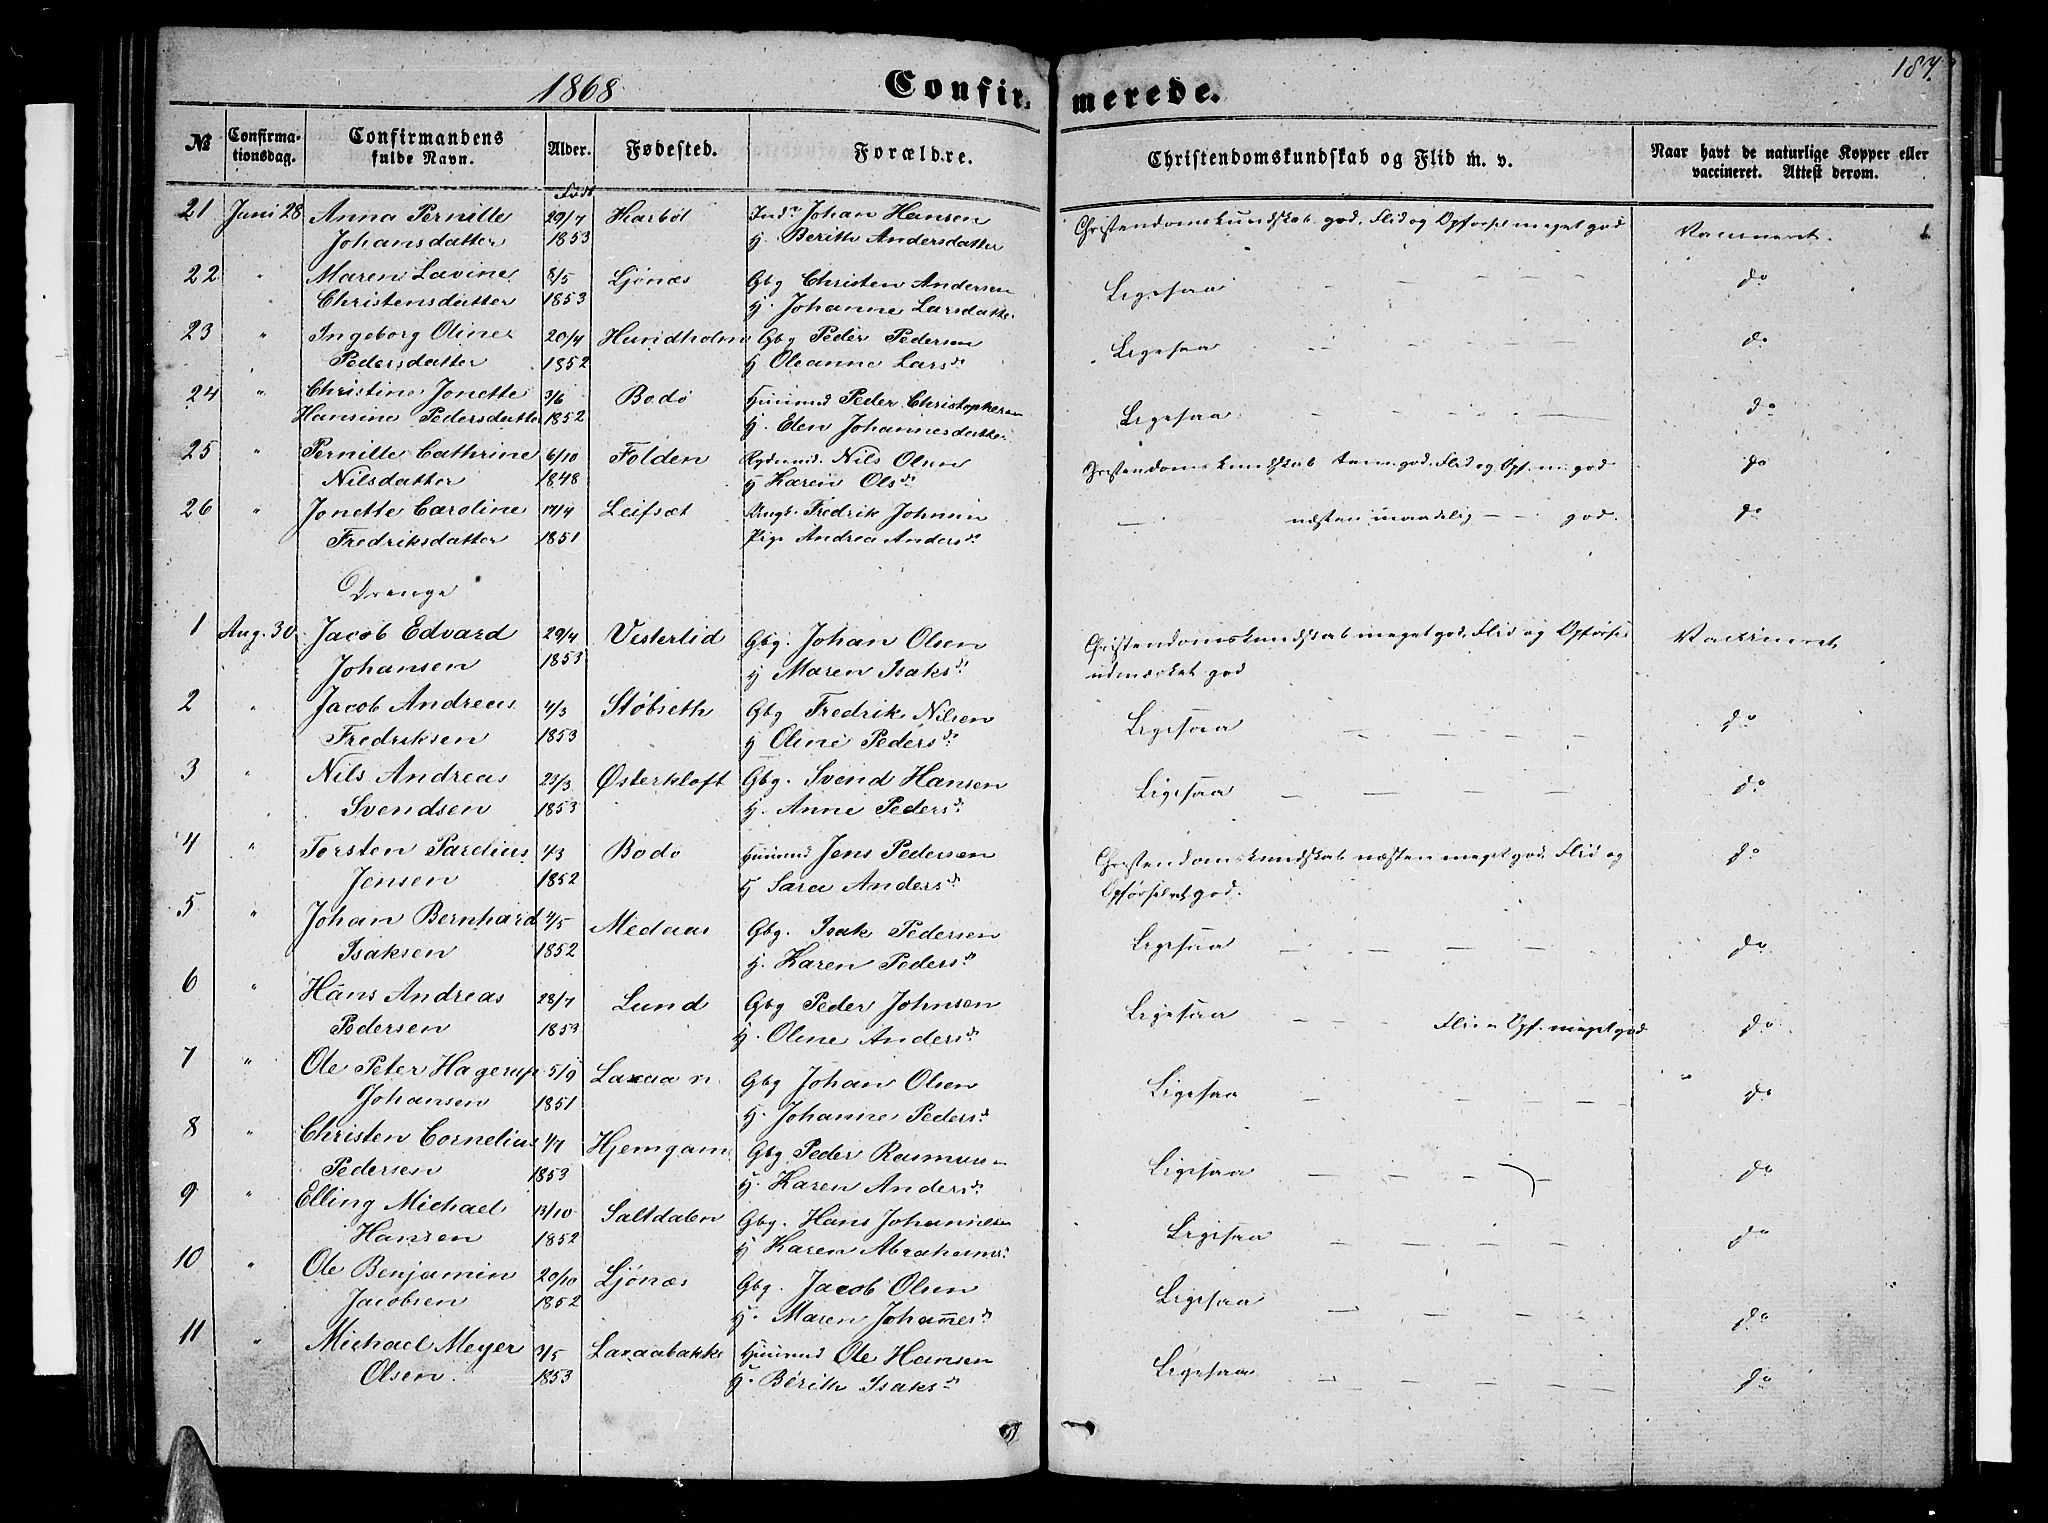 1868 Confirmerede. 187.
№ Confirmationsdag. Confirmandens fulde Navn. Alder. Fødested. Forældre. Christendomskundskab og Flid m. v. Naar havt de naturlige Kopper eller vaccineret. Attest derom.
Født
21 Juni 28 Anna Pernille 29/7 Harbøl Inds Johan Hansen Christendomskundskab god, Flid og Opførsel meget god Vaccineret.
Johansdatter 1853 H. Berith Andersdatter
22 " Maren Lavine 8/5 Ljønæs Gbg Christen Andersen Ligesaa — — — — do
Christensdatter 1853 H. Johanne Larsdatter
23 " Ingeborg Oline 20/4 Hundholm Gbg Peder Pedersen Ligesaa — — — — do
Pedersdatter 1852 H Oleanne Larsdr
24 " Christine Jonette 3/6 Bodø Huusmd Peder Christophersen Ligesaa — — — — do
Hansine Pedersdatter 1852 H. Elen Johannesdatter
25 " Pernille Cathrine 6/10 Folden Nils Olsen Christendomskundskab god, Flid og Opf. m. god do
Nilsdatter 1848 H Karen Olsdr
26 " Jonette Caroline 17/4 Leifsæt Ungk. Fredrik Johnsen — næsten maadelig — — god. do
Fredriksdatter 1851 Pige Andrea Andersdr
Drenge
1 Aug. 30 Jacob Edvard 29/4 Vesterlid Gbg. Johan Olsen Christendomskundskab meget god, Flid og Opførsel Vaccineret
Johansen 1853 H Maren Isaksdr udmærket god
2 " Jacob Andreas 4/3 Støbseth Gbg Fredrik Nilsen Ligesaa — — — — do
Fredriksen 1853 H Oline Pedersdr
3 " Nils Andreas 23/3 Østerkløft Gbg. Svend Hansen Ligesaa — — — — do
Svendsen 1853 H. Anne Pedersdr
4 " Torsten Parelius 4/3 Bodø Huusmd Jens Pedersen Christendomskundskab næsten meget god, Flid og do
Jensen 1852 H Sara Andersdr Opførsel god.
5 " Johan Bernhard 4/5 Medaas Gbg. Isak Pedersen Ligesaa — — — — do
Isaksen 1852 H. Karen Pedersdr
6 " Hans Andreas 28/7 Lund Gbg Peder Johnsen Ligesaa — — — Flid o Opf. meget god do
Pedersen 1853 H. Oline Andersdr
7 " Ole Peter Hagerup 5/9 Laxaa n. Gbg Johan Olsen Ligesaa — — — — do
Johansen 1851 H. Johanne Pedersdr
8 " Christen Cornelius 4/7 Hjemgam Gbg Peder Rasmussen Ligesaa — — — — do
Pedersen 1853 H. Karen Andersdr
9 " Elling Michael 13/10 Saltdalen Gbg. Hans Johannessen Ligesaa — — — — do
Hansen 1852 H Karen Abrahams.
10 " Ole Benjamin 20/10 Ljønæs Gbg. Jacob Olsen Ligesaa — — — — do
Jacobsen 1852 H. Maren Johannesdr
11 " Michael Meyer 3/5 Laxaabakke Huusmd Ole Hansen Ligesaa — — — — do
Olsen. 1853 H. Berith Isaksdr